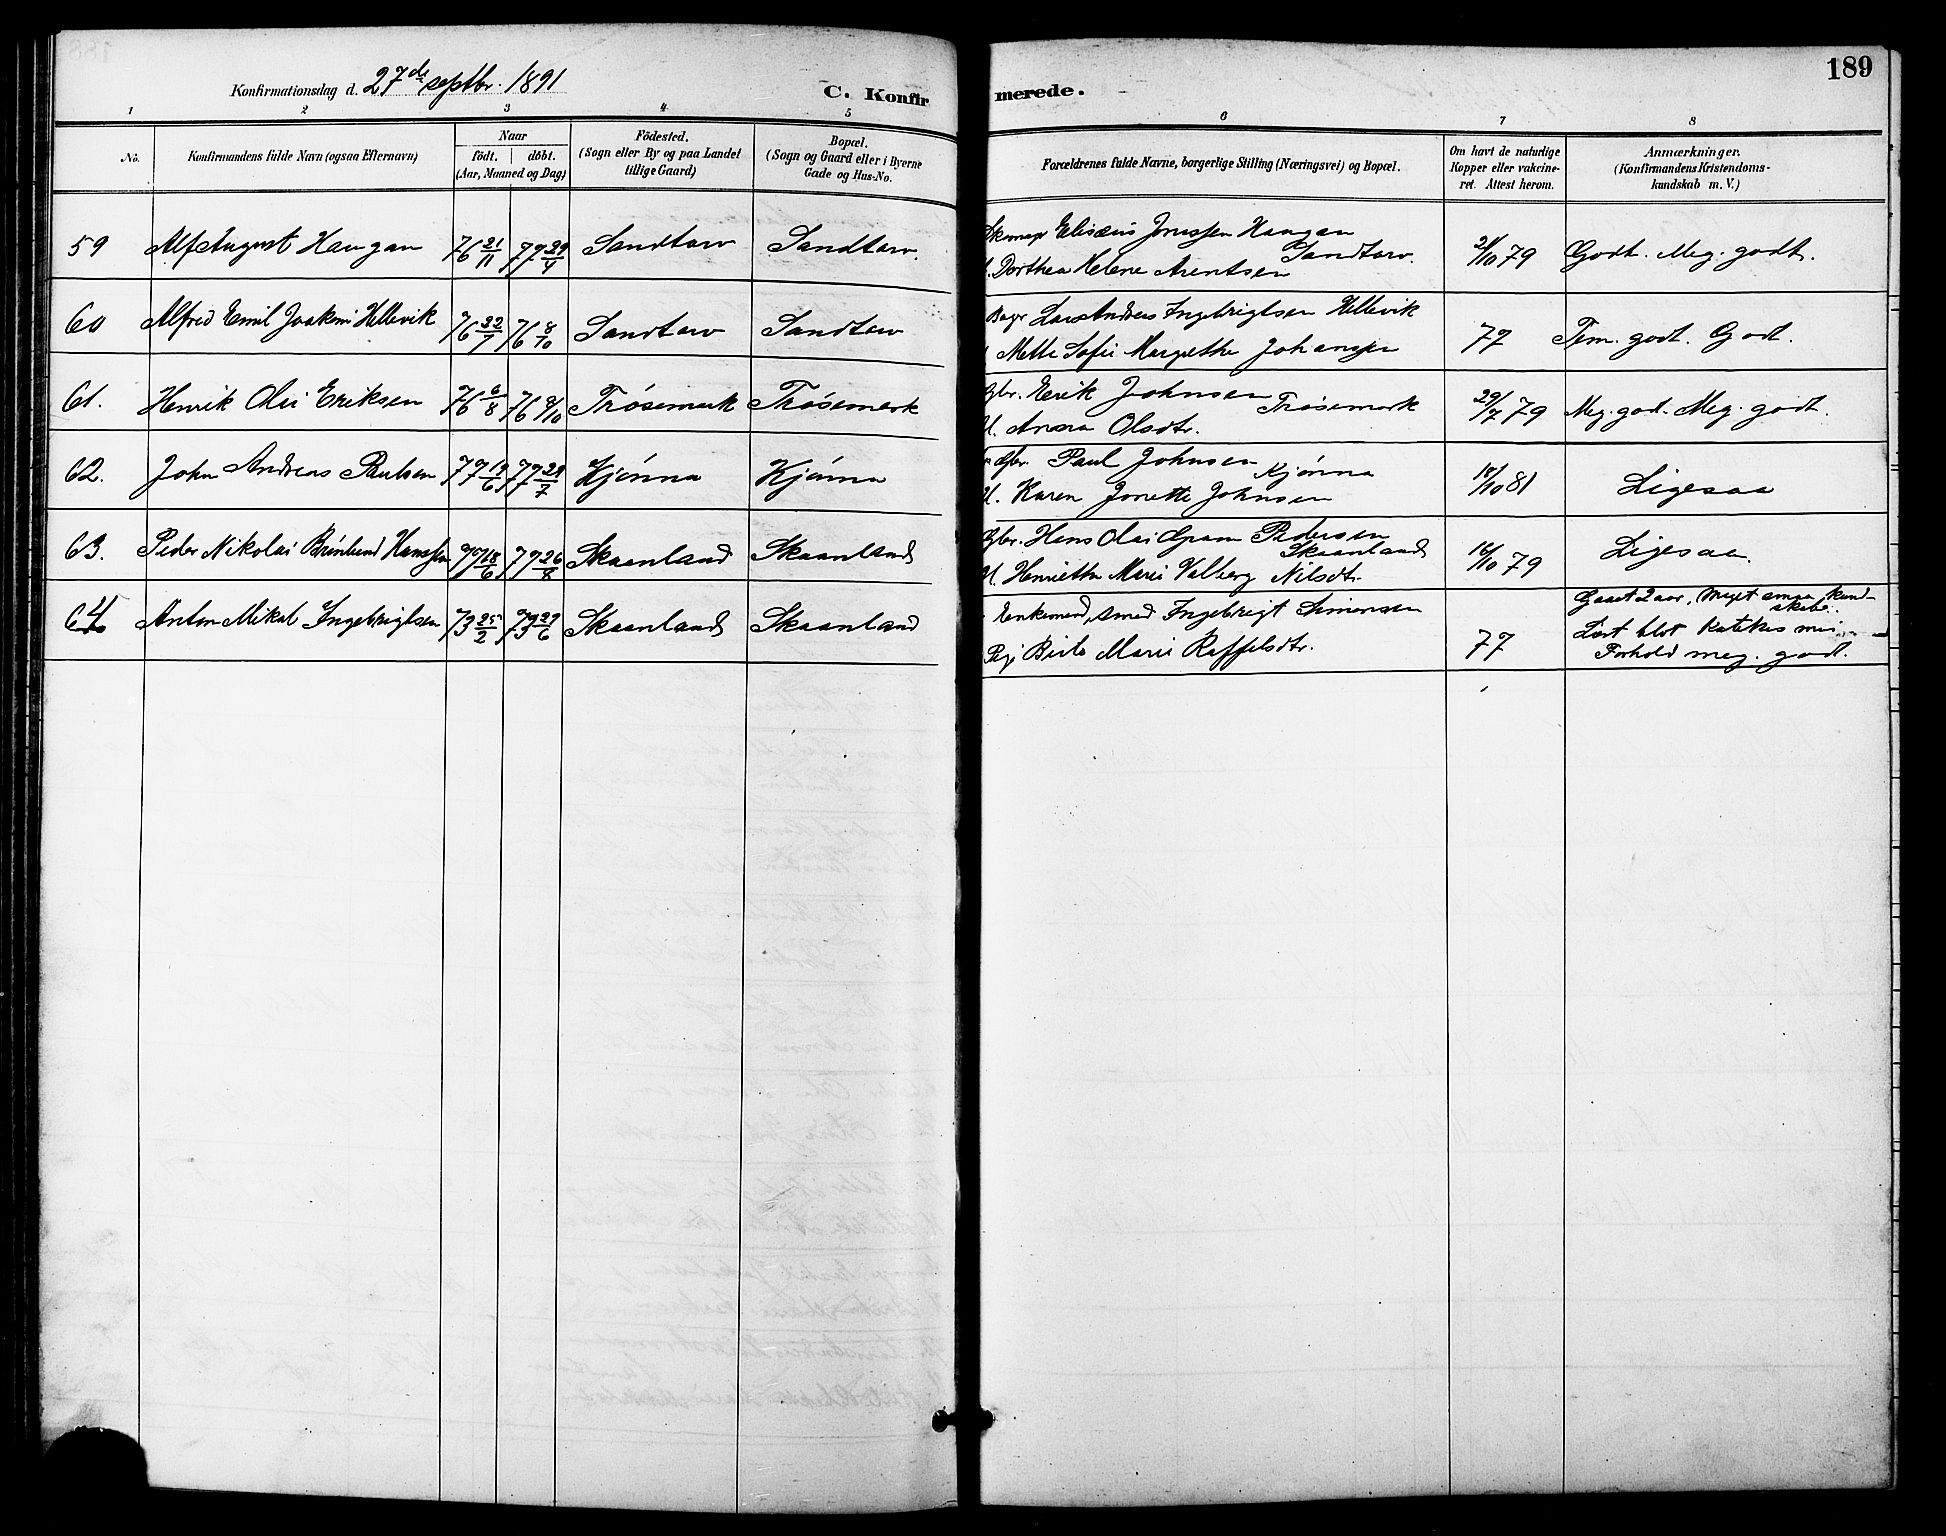 189
Konfirmationsdag d. 27de septbr. 1891
C. Konfirmerede.
1 2 3 4 5 6 7 8
No.
Konfirmandens fulde Navn (ogsaa Efternavn)
Naar
födt. döbt.
(Aar, Maaned og Dag)
Födested.
(Sogn eller By og paa Landet
tillige Gaard)
Bopæl.
(Sogn og Gaard eller i Byerne
Gade og Hus-No.
Forældrenes fulde Navne, borgerlige Stilling (Næringsvei) og Bopæl.
Om havt de naturlige
Kopper eller vakcine-
ret. Attest herom.
Anmærkninger.
(Konfirmandens Kristendoms-
kundskab m. V.)
59 Alf August Haugan 76 21/11 77 29/4 Sandtorv Sandtorv. Elisæus Jonssen Haugan Sandtorv.
Dorthea Helene Arentsen 21/10 79 Godt. Meg. godt.
60 Alfred Emil Joakim Hellevik 76 22/7 76 8/10 Sandtorv Sandtorv Lars Andreas Ingebrigtsen Hellevik
Mette Sofie Margrethe Johansen 77 Tem. godt. Godt.
61. Henrik Olai Eriksen 76 6/8 76 8/10 Trøsemark Trøsemark Gbr. Erik Johnsen Trøsemark
H. Anna Olsdtr. 29/7 79 Meg. godt. Meg. godt.
62. John Andreas Paulsen 77 19/6 77 28/7 Kjønna Kjønna Gbr. Paul Johnsen Kjønna
H. Karen Jonette Johnsen 18/10 81 Ligesaa
63. Peder Nikolai Brinlund Hanssen 77 18/6 77 26/8 Skaanland Skaanland Gbr. Hans Olai Gram Pedersen
Skaanland
H. Henrietta Marie Valberg Nilsdtr. 16/10 79 Ligesaa.
64 Anton Mikal Ingebrigtsen 73 25/2 73 29/6 Skaanland Skaanland Enkemand, smed Ingebrigt Simonsen
Pige Berte Marie Raffelsdtr. 77 Gaaet 2 aar, Meget smaa kund-
skaber.
Læst blot
Forhold meg. godt.